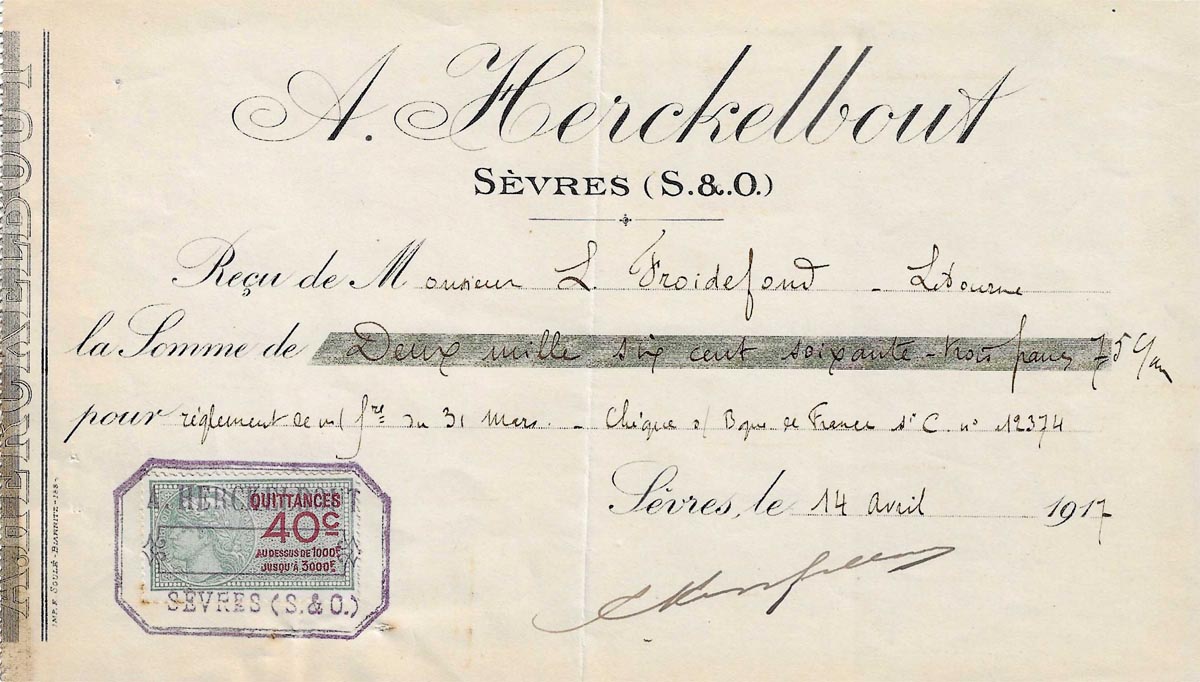 A. HERCKELBOUT
A. Herckelbout
SÈVRES (S.&.O.)
Reçu de Monsieur L. Froidefond - Libourne
la Somme de Deux mille six cent soixante-trois francs 75 c/m
pour réglement de m/ fre du 31 Mars. - Chèque s/ Bque de France st C. no 12374
Sèvres, le 14 avril 1917
A. HERCKELBOUT
QUITTANCES
40c
AU DESSUS DE 1000F
JUSQU'À 3000F
SÈVRES (S.&O.)
IMP. F. SOULÉ-BIARRITZ-